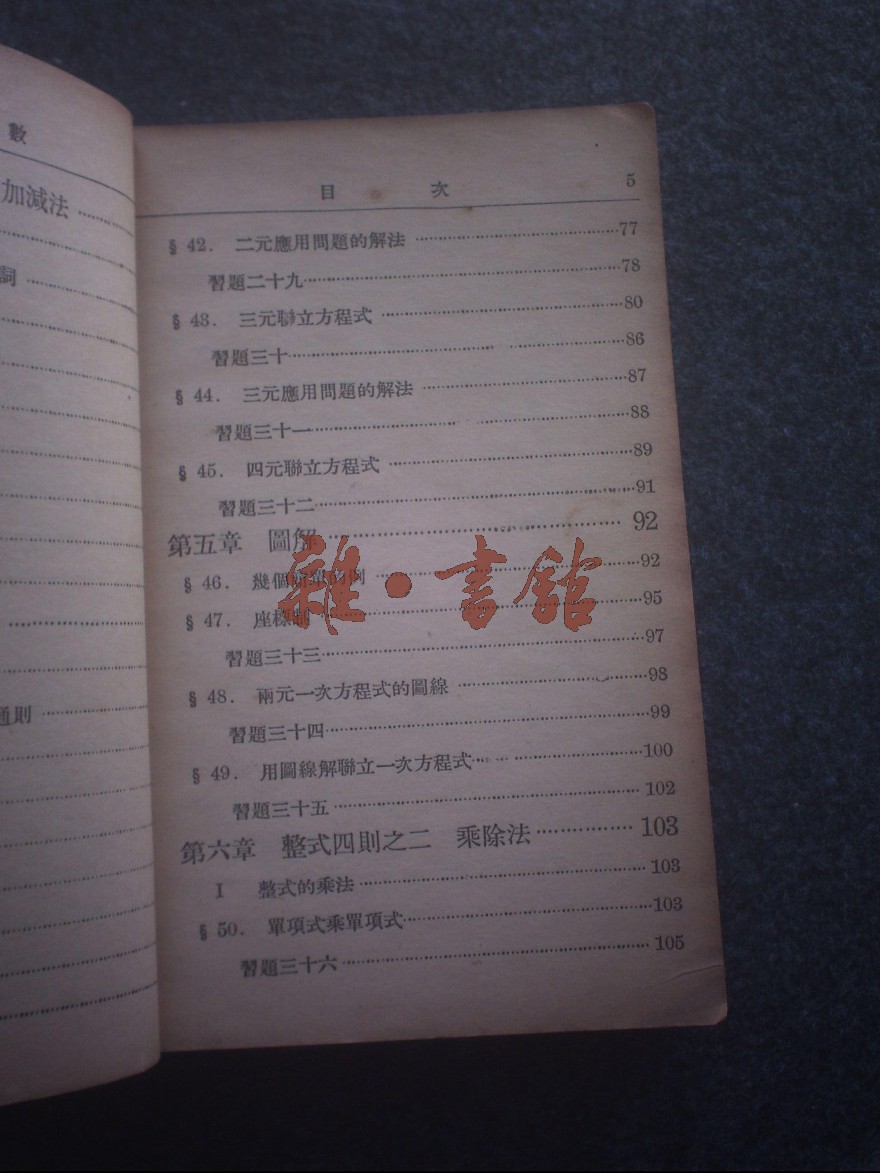 數
加減法
詞
通則
目 次 5
§ 42. 二元應用問題的解法 77
習題二十九 78
§ 43. 三元聯立方程式 80
習題三十 86
§ 44. 三元應用問題的解法 87
習題三十一 88
§ 45. 四元聯立方程式 89
習題三十二 91
第五章 圖解 92
§ 46. 幾個簡單的例 92
§ 47. 座標制 95
習題三十三 97
§ 48. 兩元一次方程式的圖線 98
習題三十四 99
§ 49. 用圖線解聯立一次方程式 100
習題三十五 102
第六章 整式四則之二 乘除法 103
I 整式的乘法 103
§ 50. 單項式乘單項式 103
習題三十六 105
雜·書館